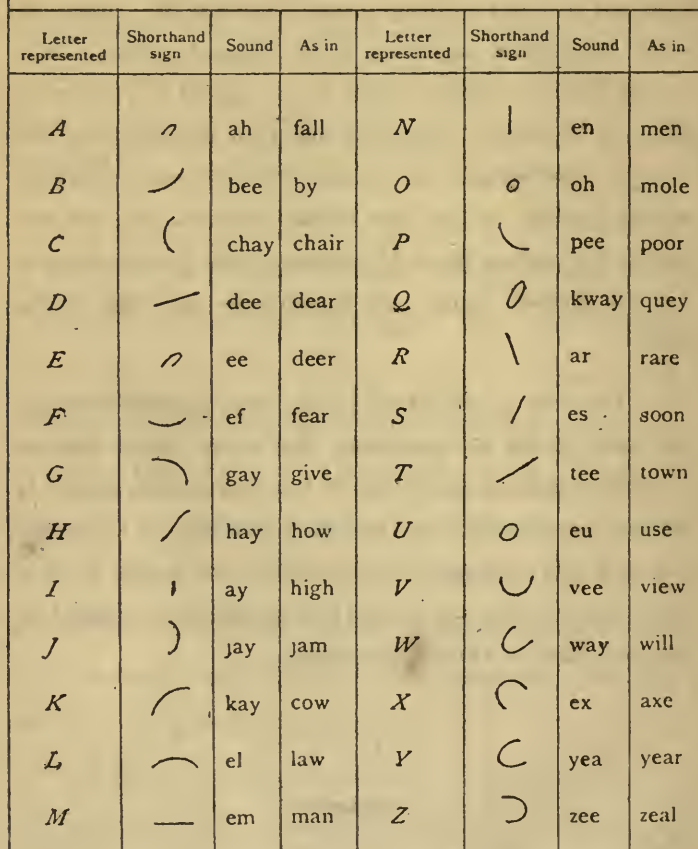 Letter represented Shorthand sign Sound As in Letter represented Shorthand sign Sound As in
A ah fall N en men
B bee by O oh mole
C chay chair P pee poor
D dee dear Q kway quey
E ee deer R ar rare
F ef fear S es soon
G gay give T tee town
H hay how U eu use
I ay high V vee view
J jay jam W way will
K kay cow X ex axe
L el law Y yea year
M em man Z zee zeal